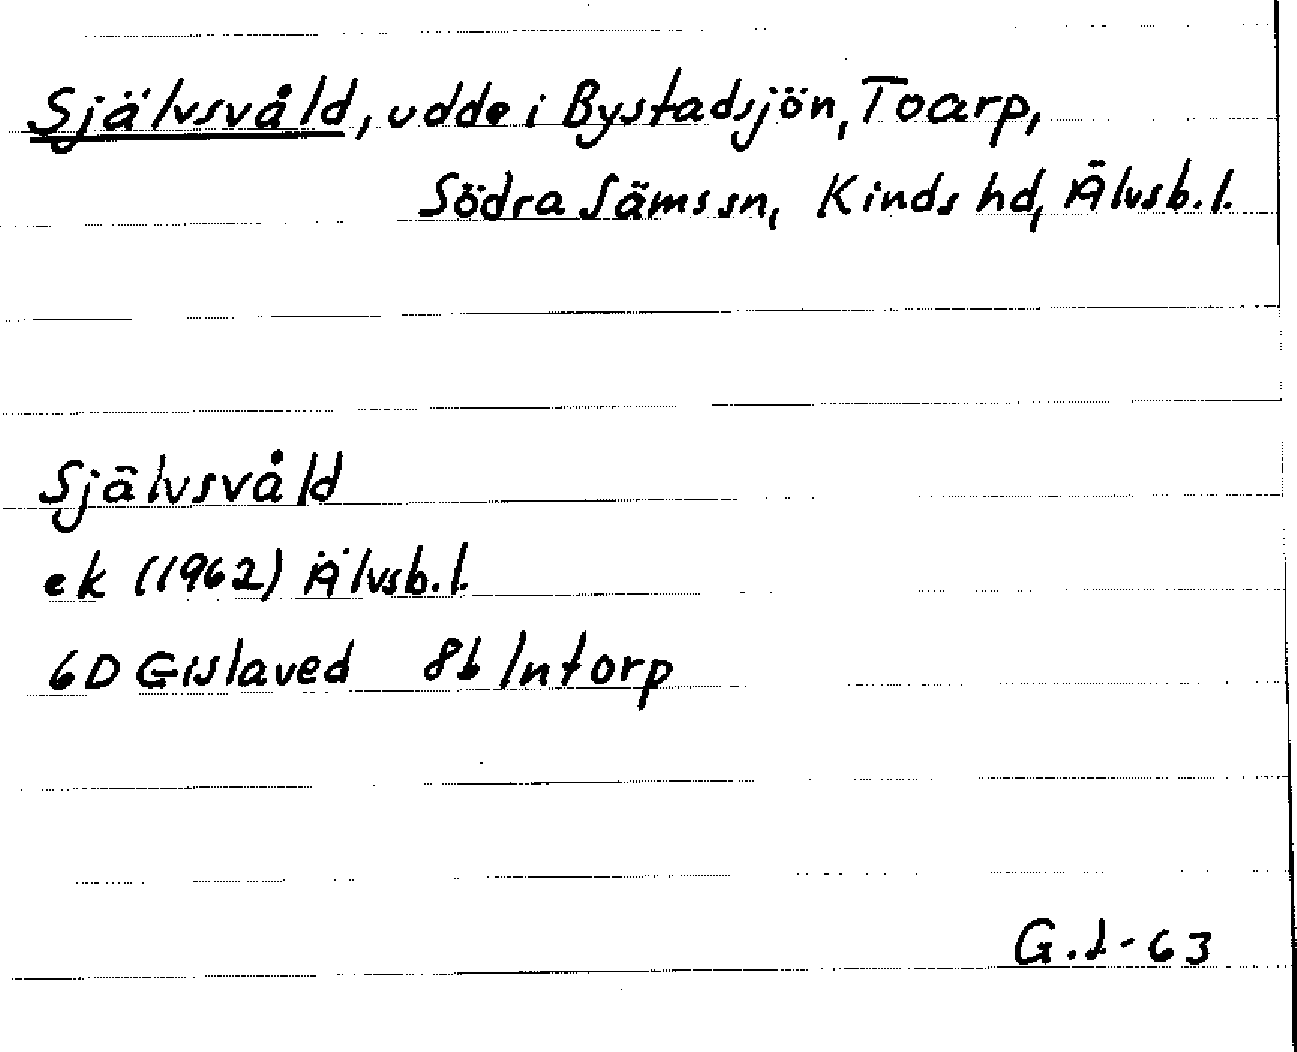 Självsvåld, udde i Bystadsjön, Toarp,
Södra Säms sn, Kinds hd, Älvsb. l.
Självsvåld
ek (1962) Älvsb. l.
6D Gislaved 8b Intorp
G. L-63